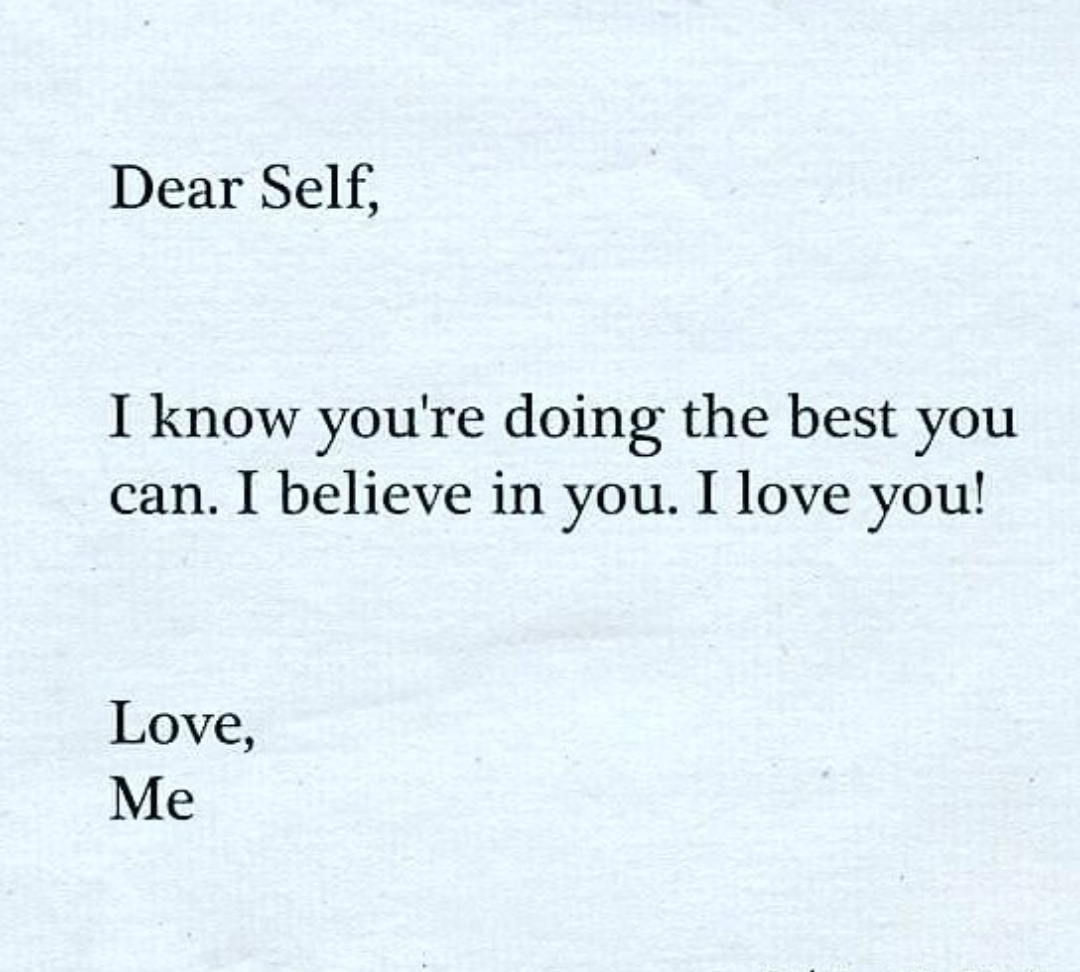 Dear Self,
I know you're doing the best you
can. I believe in you. I love you!
Love,
Me